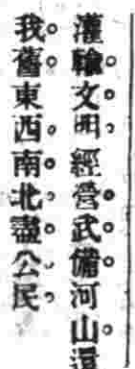 灌輸。文明，經營。武備。河山。還
我。舊。東西。南。北。盡。公，民，